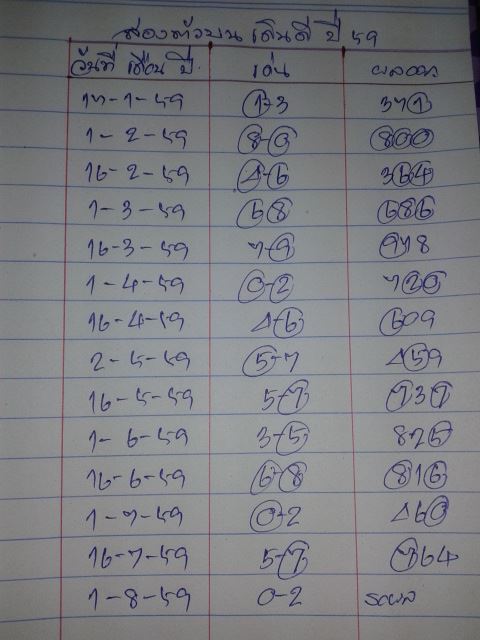 สองตัวบน เดินดี ปี 59
วันที่ เดือน ปี. เด่น ผลออก
17-1-59 1-3 371
1-2-59 8-0 800
16-2-59 4-6 364
1-3-59 68 686
16-3-59 7-9 978
1-4-59 0-2 720
16-4-59 4-6 609
2-5-59 5-7 459
16-5-59 5-7 737
1-6-59 3-5 825
16-6-59 6-8 816
1-7-59 0-2 460
16-7-59 5-7 764
1-8-59 0-2 รอผล